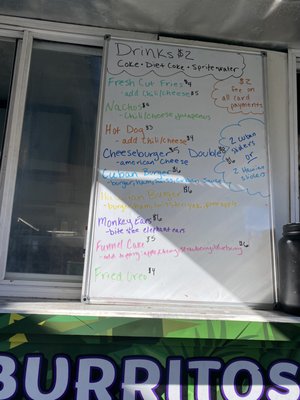 Drinks $2
Coke • Diet Coke • Sprite • water
Fresh Cut Fries $4
- add Chili/cheese $5
$2
fee on
all card
payments
Nachos $6
- Chili/cheese jalapenos
Hot Dog $3
- add chili/cheese $4
Cheeseburger $5 Double $6
- american cheese
2 Cuban
Sliders
or
2 Hawaiian
Sliders
Cuban Burger $6
- burger, ham,
Hawaiian Burger $6
- burger, ham,
Monkey Ears $6
- bite the elephant ears
Funnel Cake $5
- add topping: apple, cherry, strawberry, blueberry $6
Fried Oreo $4
BURRITOS